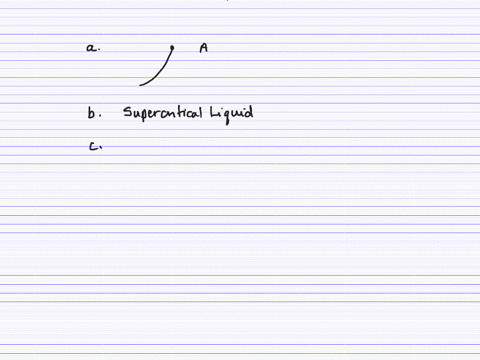 a. A
b. Supercritical Liquid
c.